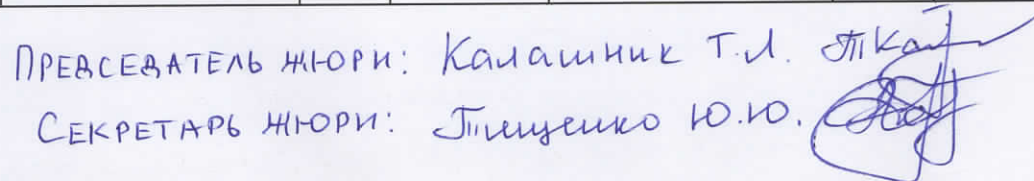 ПРЕДСЕДАТЕЛЬ ЖЮРИ: Калашник Т.Л.
СЕКРЕТАРЬ ЖЮРИ: Тищенко Ю.Ю.